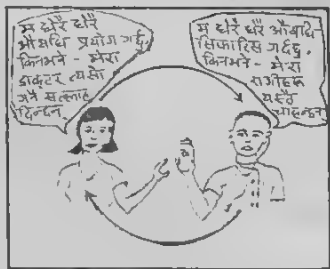 म धेरै धेरै
औषधि प्रयोग गर्छु,
किनभने - मेरा
डाक्टर त्यसो
गर्न सल्लाह
दिन्छन्.
म धेरै धेरै औषधि
सिफारिस गर्दछु,
किनभने - मेरा
रोगीहरू
यस्तै
चाहन्छन्.